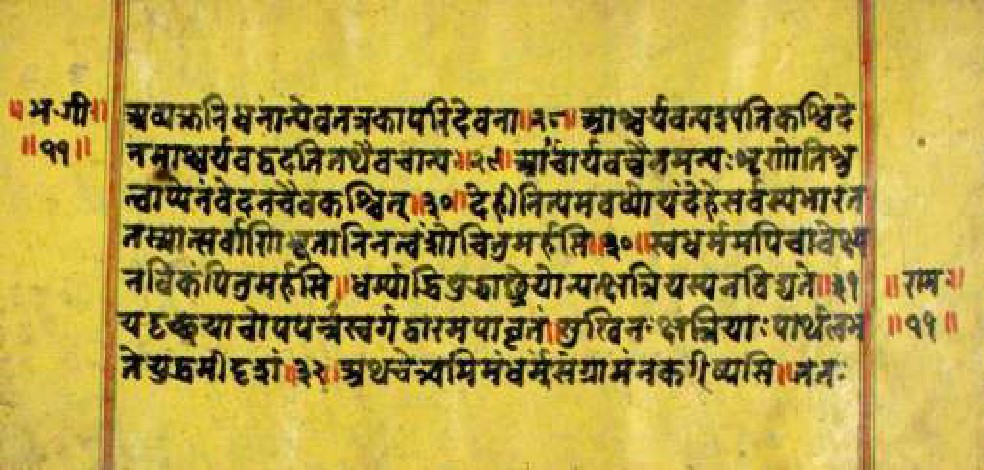 ॥भ॰गी॥
॥११॥
अव्यक्तनिधनान्येवतत्रकापरिदेवना॥२८॥आश्चर्यवत्पश्यतिकश्चिदे
नमाश्चर्यवद्वदतितथैवचान्यः॥२९॥आश्चर्यवच्चैनमन्यःशृणोतिश्रु
त्वाप्येनंवेदनचैवकश्चित्॥३०॥देहीनित्यमवध्योयंदेहेसर्वस्यभारत
तस्मात्सर्वाणिभूतानिनत्वंशोचितुमर्हसि॥३०॥स्वधर्ममपिचावेक्ष्य
नविकंपितुमर्हसि॥धर्म्याद्धियुद्धाछ्रेयोन्यत्क्षत्रियस्यनविद्यते॥३१
यदृच्छयाचोपपन्नंस्वर्गद्वारमपावृतं॥सुखिनःक्षत्रियाःपार्थलभ
तेयुद्धमीदृशं॥३२॥अथचेत्त्वमिमंधर्म्यंसंग्रामंनकरिष्यसि॥ततः
॥राम॥
॥११॥